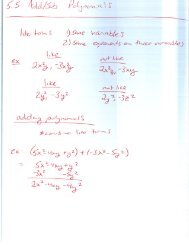 5.5 Add/Sub Polynomials
like terms 1) same variables
2) same exponents on those variables
ex like not like
2x²y, -3x²y 2x²y, -3xy
like not like
2y², -3y² 2y², -3z²
adding polynomials
*combine like terms
ex (5x²+4xy+y²) + (-3x²-5y²)
5x²+4xy+y²
-3x² -5y²
2x²+4xy-4y²